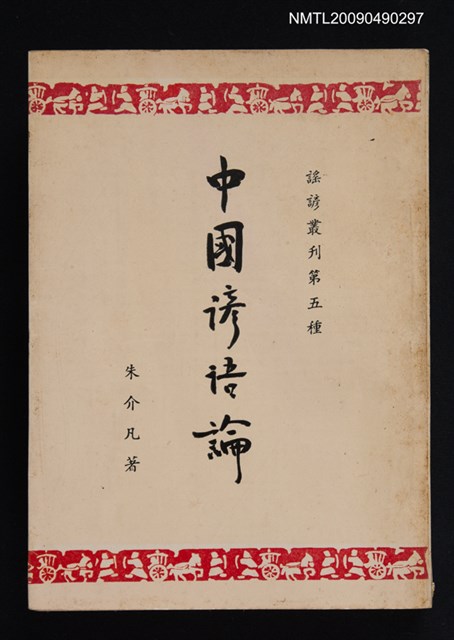 NMTL20090490297
謠諺叢刊第五種
中國諺語論
朱介凡著